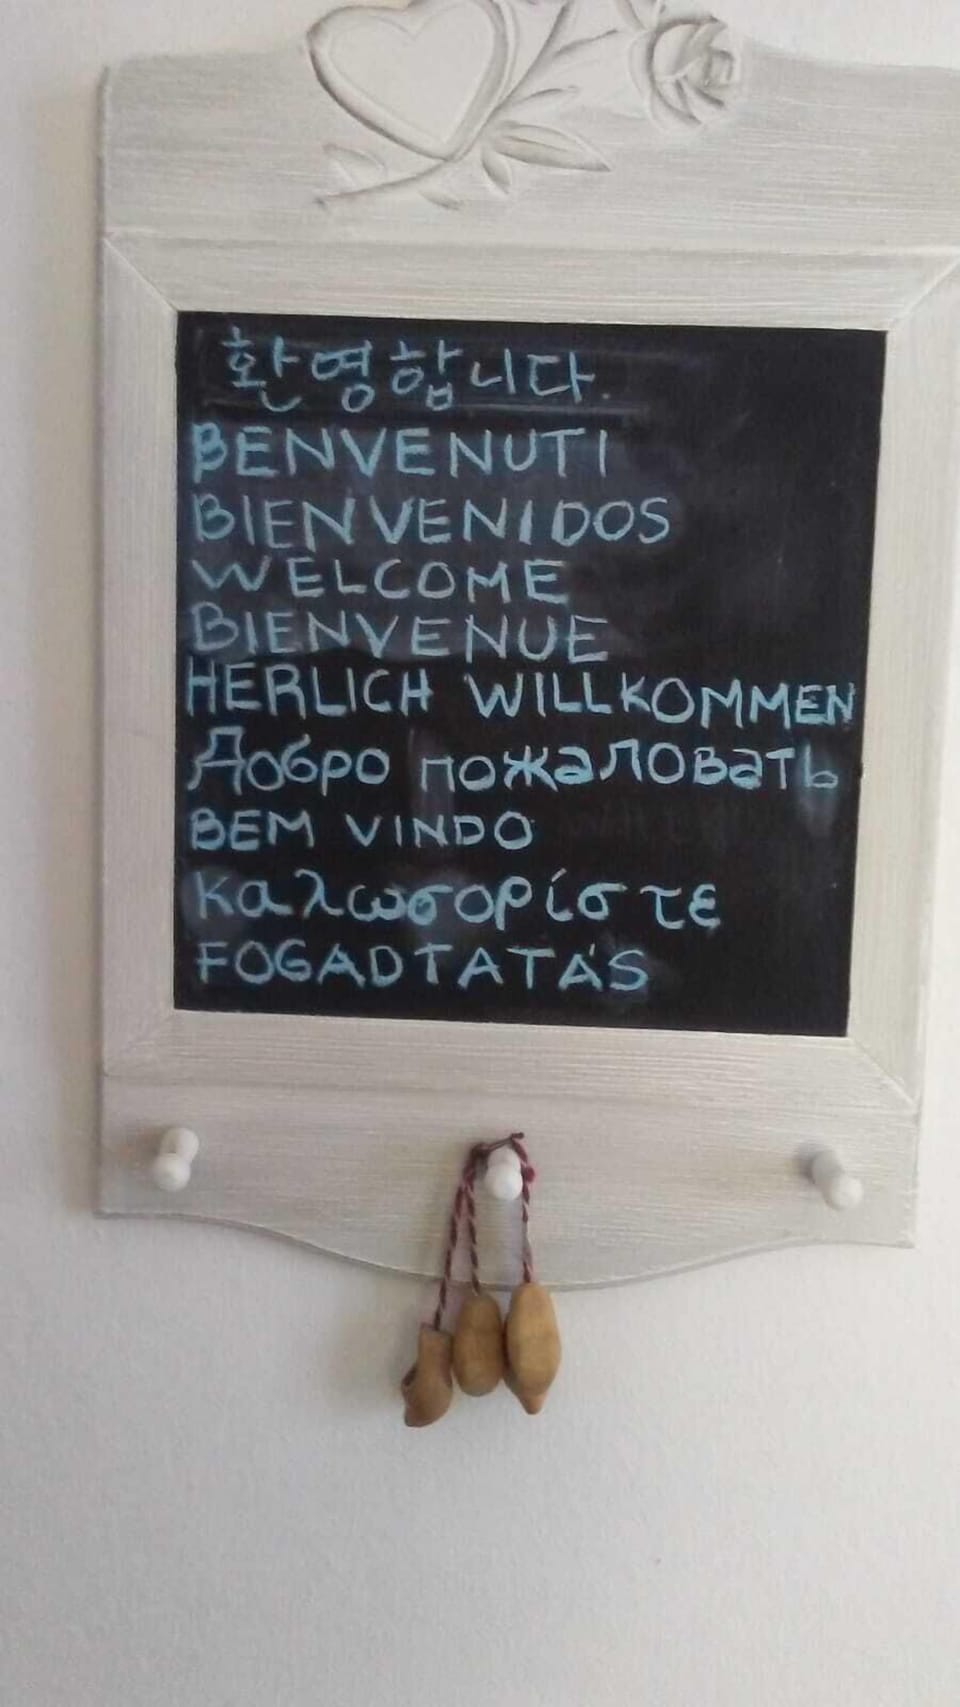 환영합니다.
BENVENUTI
BIENVENIDOS
WELCOME
BIENVENUE
HERLICH WILLKOMMEN
Добро пожаловать
BEM VINDO
καλωσορίσ τε
FOGADTATÁS